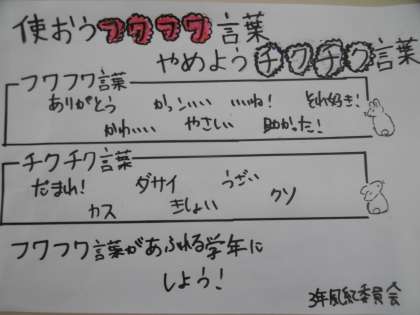 使おうフワフワ言葉
やめようチクチク言葉
フワフワ言葉
ありがとう かっこいい いいね! それ好き!
かわいい やさしい 助かった!
チクチク言葉
だまれ! ダサイ うざい
カス きしょい クソ
フワフワ言葉があふれる学年に
しよう!
3年風紀委員会